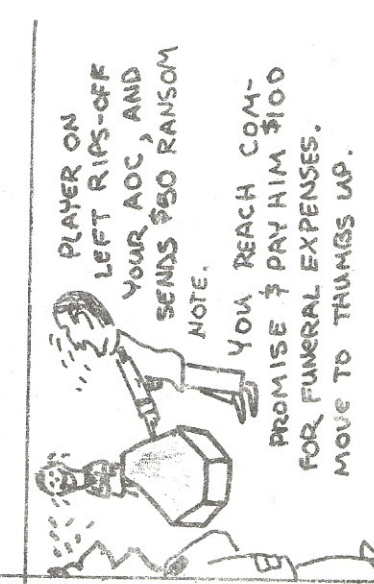 PLAYER ON
LEFT RIPS-OFF
YOUR AOC, AND
SENDS $50 RANSOM
NOTE.
YOU REACH COM-
PROMISE & PAY HIM $100
FOR FUNERAL EXPENSES.
MOVE TO THUMBS UP.